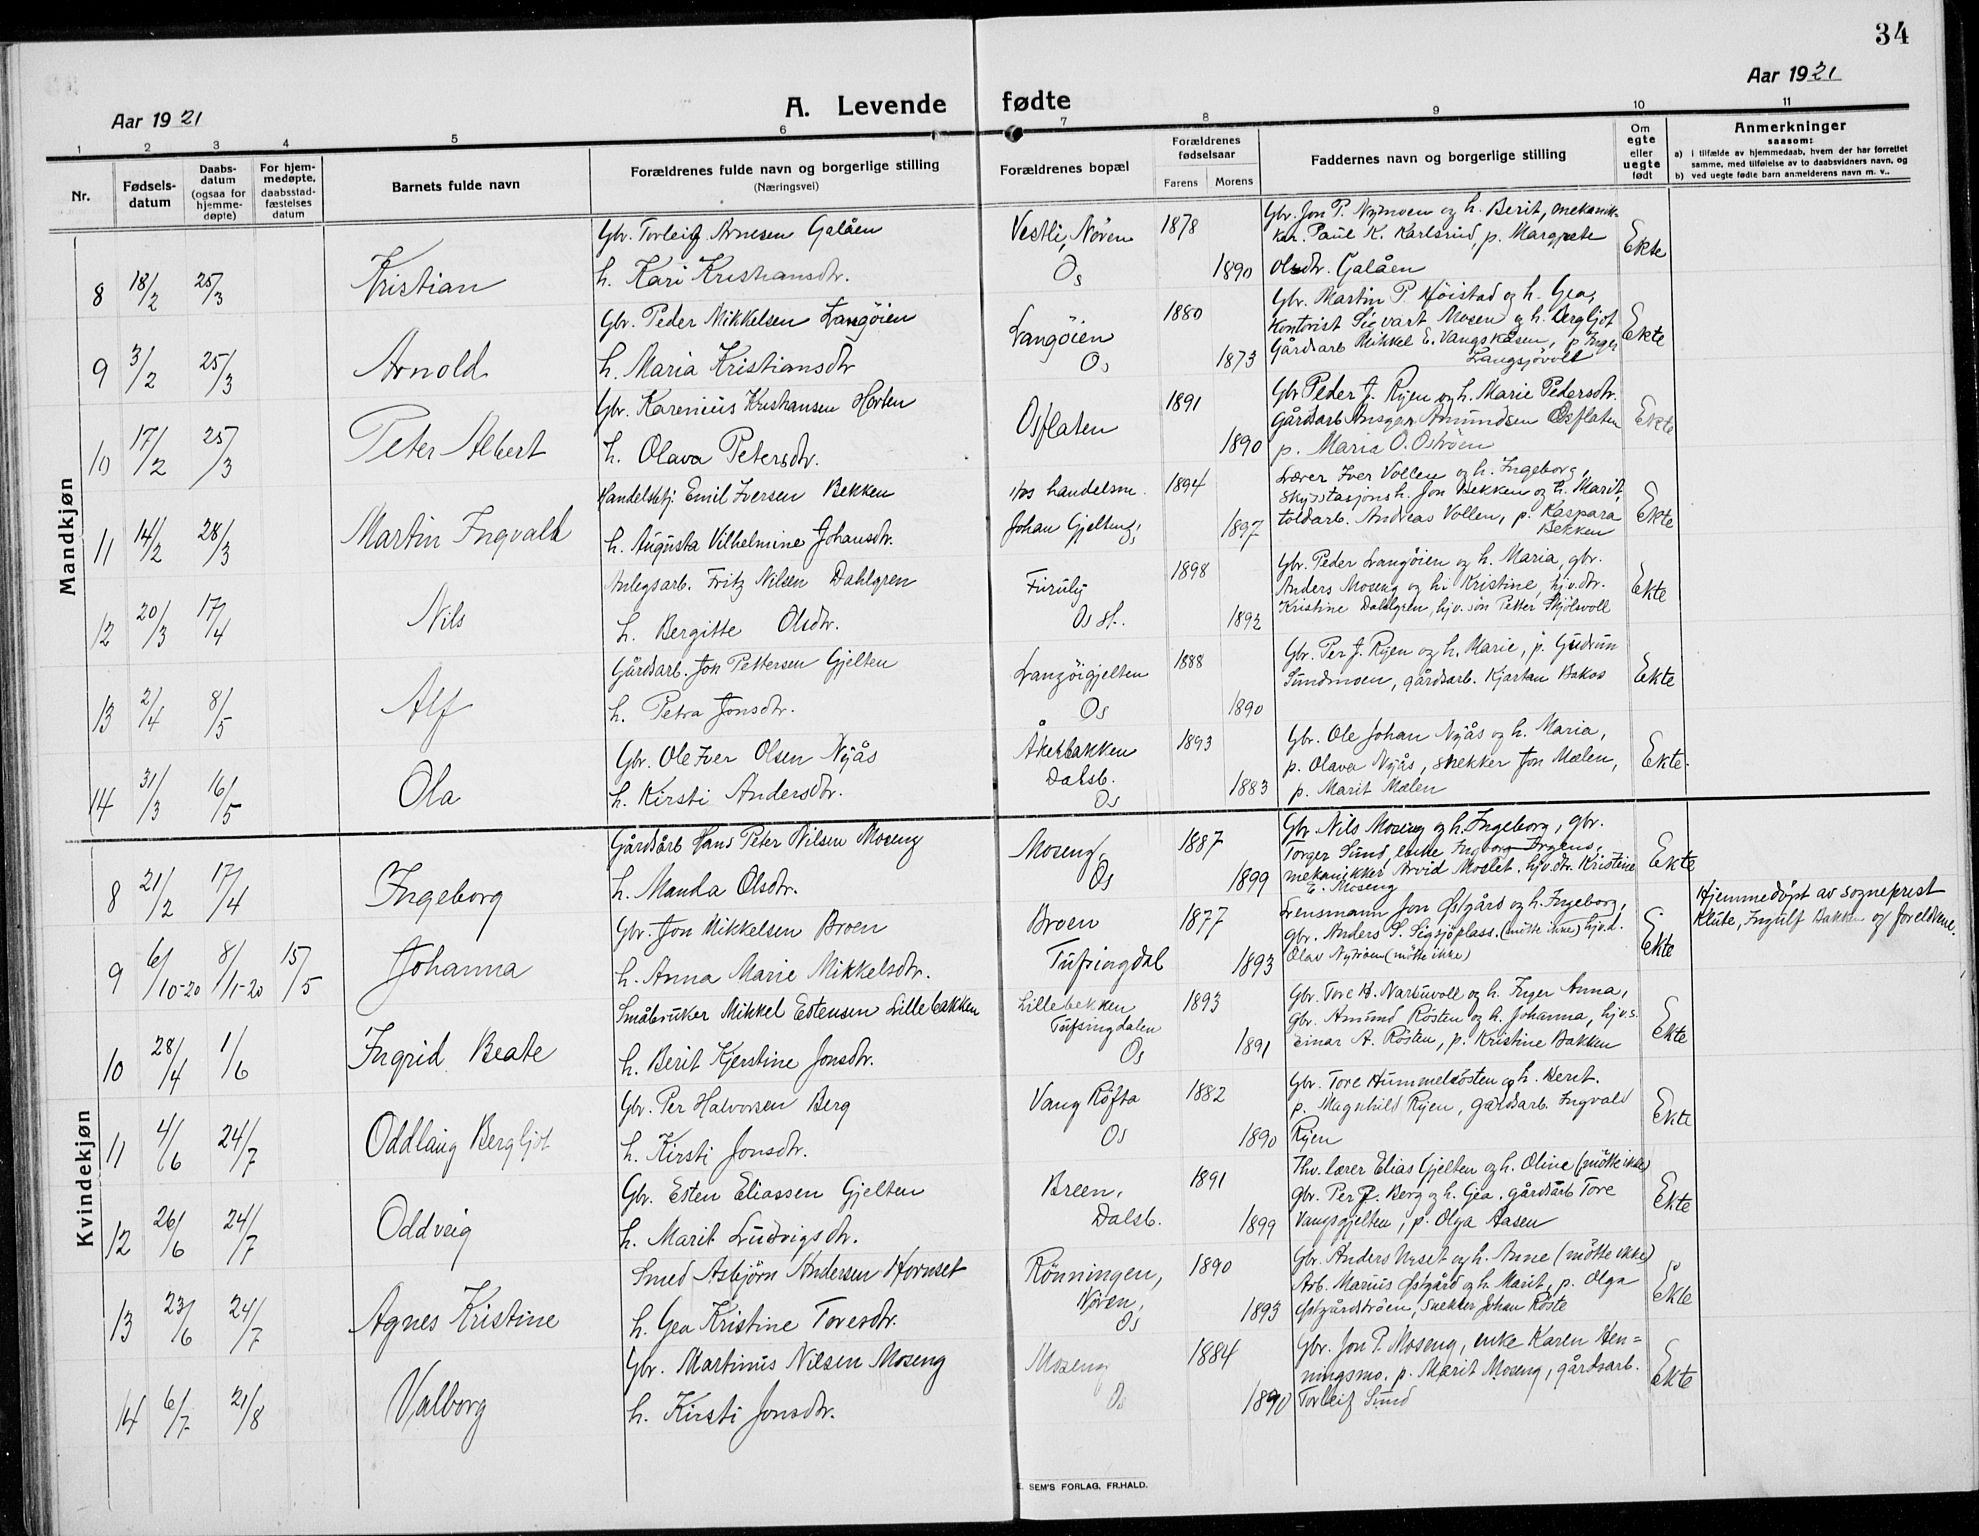 34
Aar 1921
A. Levende fødte
Aar 1921
1 2 3 4 5 6 7 8 9 10 11
Nr.
Fødsels-
datum
Daabs-
datum
(ogsaa for
hjemme-
døpte)
For hjem-
medøpte,
daabsstad-
fæstelses
datum
Barnets fulde navn
Forældrenes fulde navn og borgerlige stilling
(Næringsvei)
Forældrenes bopæl
Forældrenes
fødselsaar
Farens Morens
Faddernes navn og borgerlige stilling
Om
egte
eller
uegte
født
Anmerkninger
saasom:
a) i tilfælde av hjemmedaab, hvem der har forrettet
samme, med tilføielse av to daabsvidners navn, og
b) ved uegte fødte barn anmelderens navn m. v..
Mandkjøn
8 18/2 25/3 Kristian
Gbr. Torleif Arnesen Galåen
h. Kari Kristiansdtr.
Vestli, Nören
Os
1878 1890
Gbr. Jon P. Nymoen og h. Berit, mekanik-
ker. Paul K. Karlsrud, p. Margrete
Olsdtr. Galåen
Ekte
9 3/2 25/3 Arnold
Gbr. Peder Mikkelsen Langöien
h. Maria Kristiansdtr
Langöien
Os
1880 1873
Gbr. Martin P. Höistad og h. Gea,
Kontorist Sigvart Mosen og h. Bergljot
Gårdsarb Mikkel E. Vangskåsen, p Inger
Langsjövoll
Ekte
10 17/2 25/3 Peter Albert
Gbr. Karenius Kristiansen Horten
h. Olava Petersdtr.
Osflaten
1891 1890
Gbr Peder J. Ryen og h. Marie Pedersdtr.
Gårdsarb Ansgar Amundsen Osflaten
p. Maria O. Oströen
Ekte
11 14/2 28/3 Martin Ingvald
Handelsbtj. Emil Iversen Bekken
h. Augusta Vilhelmine Johansdtr.
hos handelsm.
Johan Gjelten,
1894 1897
Lærer Iver Vollen og h. Ingeborg,
skysstasjonsh. Jon Bekken og h. Marit,
toldarb. Andreas Vollen, p. Kaspara
Bekken
Ekte
12 20/3 17/4 Nils
Anlegsarb. Fritz Nilsen Dahlgren
h. Bergitte Olsdtr.
Furuly
Os st.
1898 1892
Gbr. Peder Langöien og h. Maria, gbr.
Anders Moseng og h. Kristine, hjv.dtr.
Kristine Dahlgren, hjv. sön Petter Skjölsvoll
Ekte
13 2/4 8/5 Alf
Gårdsarb. Jon Pettersen Gjelten
h. Petra Jonsdtr.
Langöigjelten
Os
1888 1890
Gbr. Per J. Ryen og h. Marie, p. Gudrun
Sundmoen, gårdsarb. Kjartan Bakos
Ekte
14 31/3 16/5 Ola
Gbr. Ole Iver Olsen Nyås
h. Kirsti Andersdtr.
Åkerbakken
Dalsb.
Os
1893 1883
Gbr. Ole Johan Nyås og h. Maria,
p. Olava Nyås, snekker Jon Mælen,
p. Marit Mælen
Ekte.
Kvindekjøn
8 21/2 17/4 Ingeborg
Gårdsårb Hans Peter Nilsen Moseng
h. Manda Olsdtr.
Moseng,
Os
1887 1899
Gbr. Nils Moseng og h. Ingeborg, gbr.
Torger Sund, enke Ingborg Irgens,
mekanikker Arvid Moslet, hjv.dtr. Kristine
E. Moseng
Ekte
9 6/10-20 8/1-20 15/5 Johanna
Gbr. Jon Mikkelsen Broen
h. Anna Marie Mikkelsdtr.
Broen
Tufsingdal
1877 1893
Lensmann Jon Østgård og h. Ingeborg,
Gbr. Anders S. Sigsjöplass. (mötte ikke) hjv.d.
Olav Nytröen (mötte ikke)
Ekte
Hjemmedöpt av sogneprest
Klute, Ingulf Bakken og foreldrene.
10 28/4 1/6 Ingrid Beate
Småbruker Mikkel Estensen Lillebakken
h. Berit Kjerstine Jonsdtr.
Lillebekken
Tufsingdalen
Os
1893 1891
Gbr. Tore H. Narbuvoll og h. Inger Anna,
Gbr. Amund Rösten og h. Johanna, hjv.s.
Einar A. Rösten, p. Kristine Bakken
Ekte
11 4/6 24/7 Oddlaug Bergljot
Gbr. Per Halvorsen Berg
h. Kirsti Jonsdtr.
Vang Röfta
Os
1882 1890
Gbr. Tore Hummelrösten og h. Berit.
p. Magnhild Ryen, gårdsarb. Ingvald
Ryen
Ekte
12 26/6 24/7 Oddveig
Gbr. Esten Eliassen Gjelten
h. Marit Ludvigsdtr.
Breen,
Dalsb.
1891 1899
Thv. lærer Elias Gjelten og h. Oline (mötte ikke)
gbr. Per J. Berg og h. Gea, gårdsårb Tore
Vangsgjelten, p. Olga Aasen
Ekte
13 23/6 24/7 Agnes Kristine
Smed Asbjörn Andersen Hornset
h. Gea Kristine Toresdtr.
Rönningen,
Nören,
Os
1890 1893
Gbr. Anders Nyset og h. Anne (mötte ikke)
Arb. Marius Østgård og h. Marit, p. Olga
Østgårdströen, snekker Johan Röste
Ekte
14 6/7 21/8 Valborg
Gbr. Martinus Nilsen Moseng
h. Kirsti Jonsdtr.
Moseng
Os
1884 1890
Gbr. Jon P. Moseng, enke Karen Hen=
ningsmo, p. Marit Moseng, gårdsarb.
Torleif Sund
Ekte
E. SEM'S FORLAG, FR.HALD.